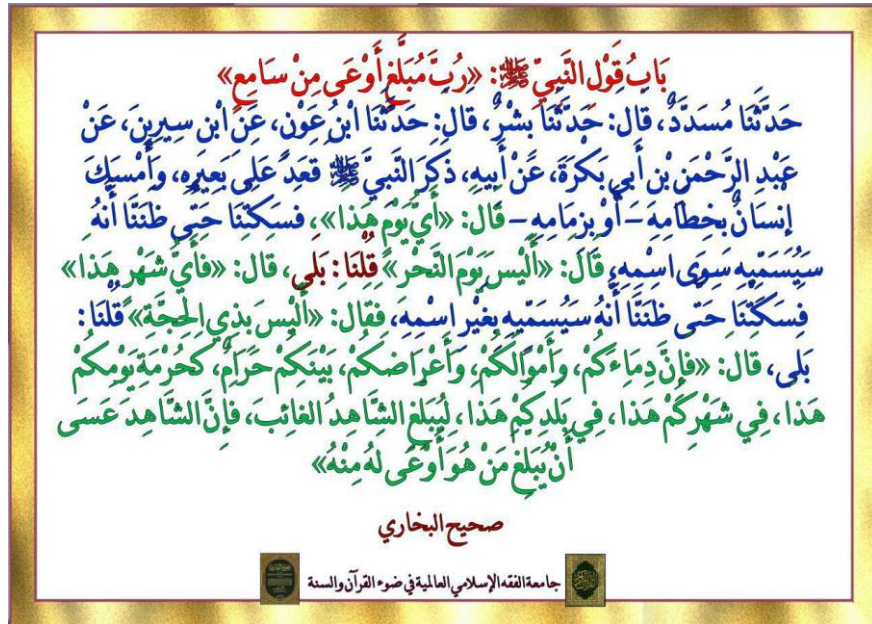 بَابُ قَوْلِ النَّبِيِّ ﷺ: «رُبَّ مُبَلَّغٍ أَوْعَى مِنْ سَامِعٍ»
حَدَّثَنَا مُسَدَّدٌ، قَالَ: حَدَّثَنَا بِشْرٌ، قَالَ: حَدَّثَنَا ابْنُ عَوْنٍ، عَنِ ابْنِ سِيرِينَ، عَنْ
عَبْدِ الرَّحْمَنِ بْنِ أَبِي بَكْرَةَ، عَنْ أَبِيهِ، ذَكَرَ النَّبِيَّ ﷺ قَعَدَ عَلَى بَعِيرِهِ، وَأَمْسَكَ
إِنْسَانٌ بِخِطَامِهِ - أَوْ بِزِمَامِهِ - قَالَ: «أَيُّ يَوْمٍ هَذَا»، فَسَكَتْنَا حَتَّى ظَنَنَّا أَنَّهُ
سَيُسَمِّيهِ سِوَى اسْمِهِ، قَالَ: «أَلَيْسَ يَوْمَ النَّحْرِ» قُلْنَا: بَلَى، قَالَ: «فَأَيُّ شَهْرٍ هَذَا»
فَسَكَتْنَا حَتَّى ظَنَنَّا أَنَّهُ سَيُسَمِّيهِ بِغَيْرِ اسْمِهِ، فَقَالَ: «أَلَيْسَ بِذِي الحِجَّةِ» قُلْنَا:
بَلَى، قَالَ: «فَإِنَّ دِمَاءَكُمْ، وَأَمْوَالَكُمْ، وَأَعْرَاضَكُمْ، بَيْنَكُمْ حَرَامٌ، كَحُرْمَةِ يَوْمِكُمْ
هَذَا، فِي شَهْرِكُمْ هَذَا، فِي بَلَدِكُمْ هَذَا، لِيُبَلِّغِ الشَّاهِدُ الغَائِبَ، فَإِنَّ الشَّاهِدَ عَسَى
أَنْ يُبَلِّغَ مَنْ هُوَ أَوْعَى لَهُ مِنْهُ»
صحيح البخاري
جامعة الفقه الإسلامي العالمية في ضوء القرآن والسنة